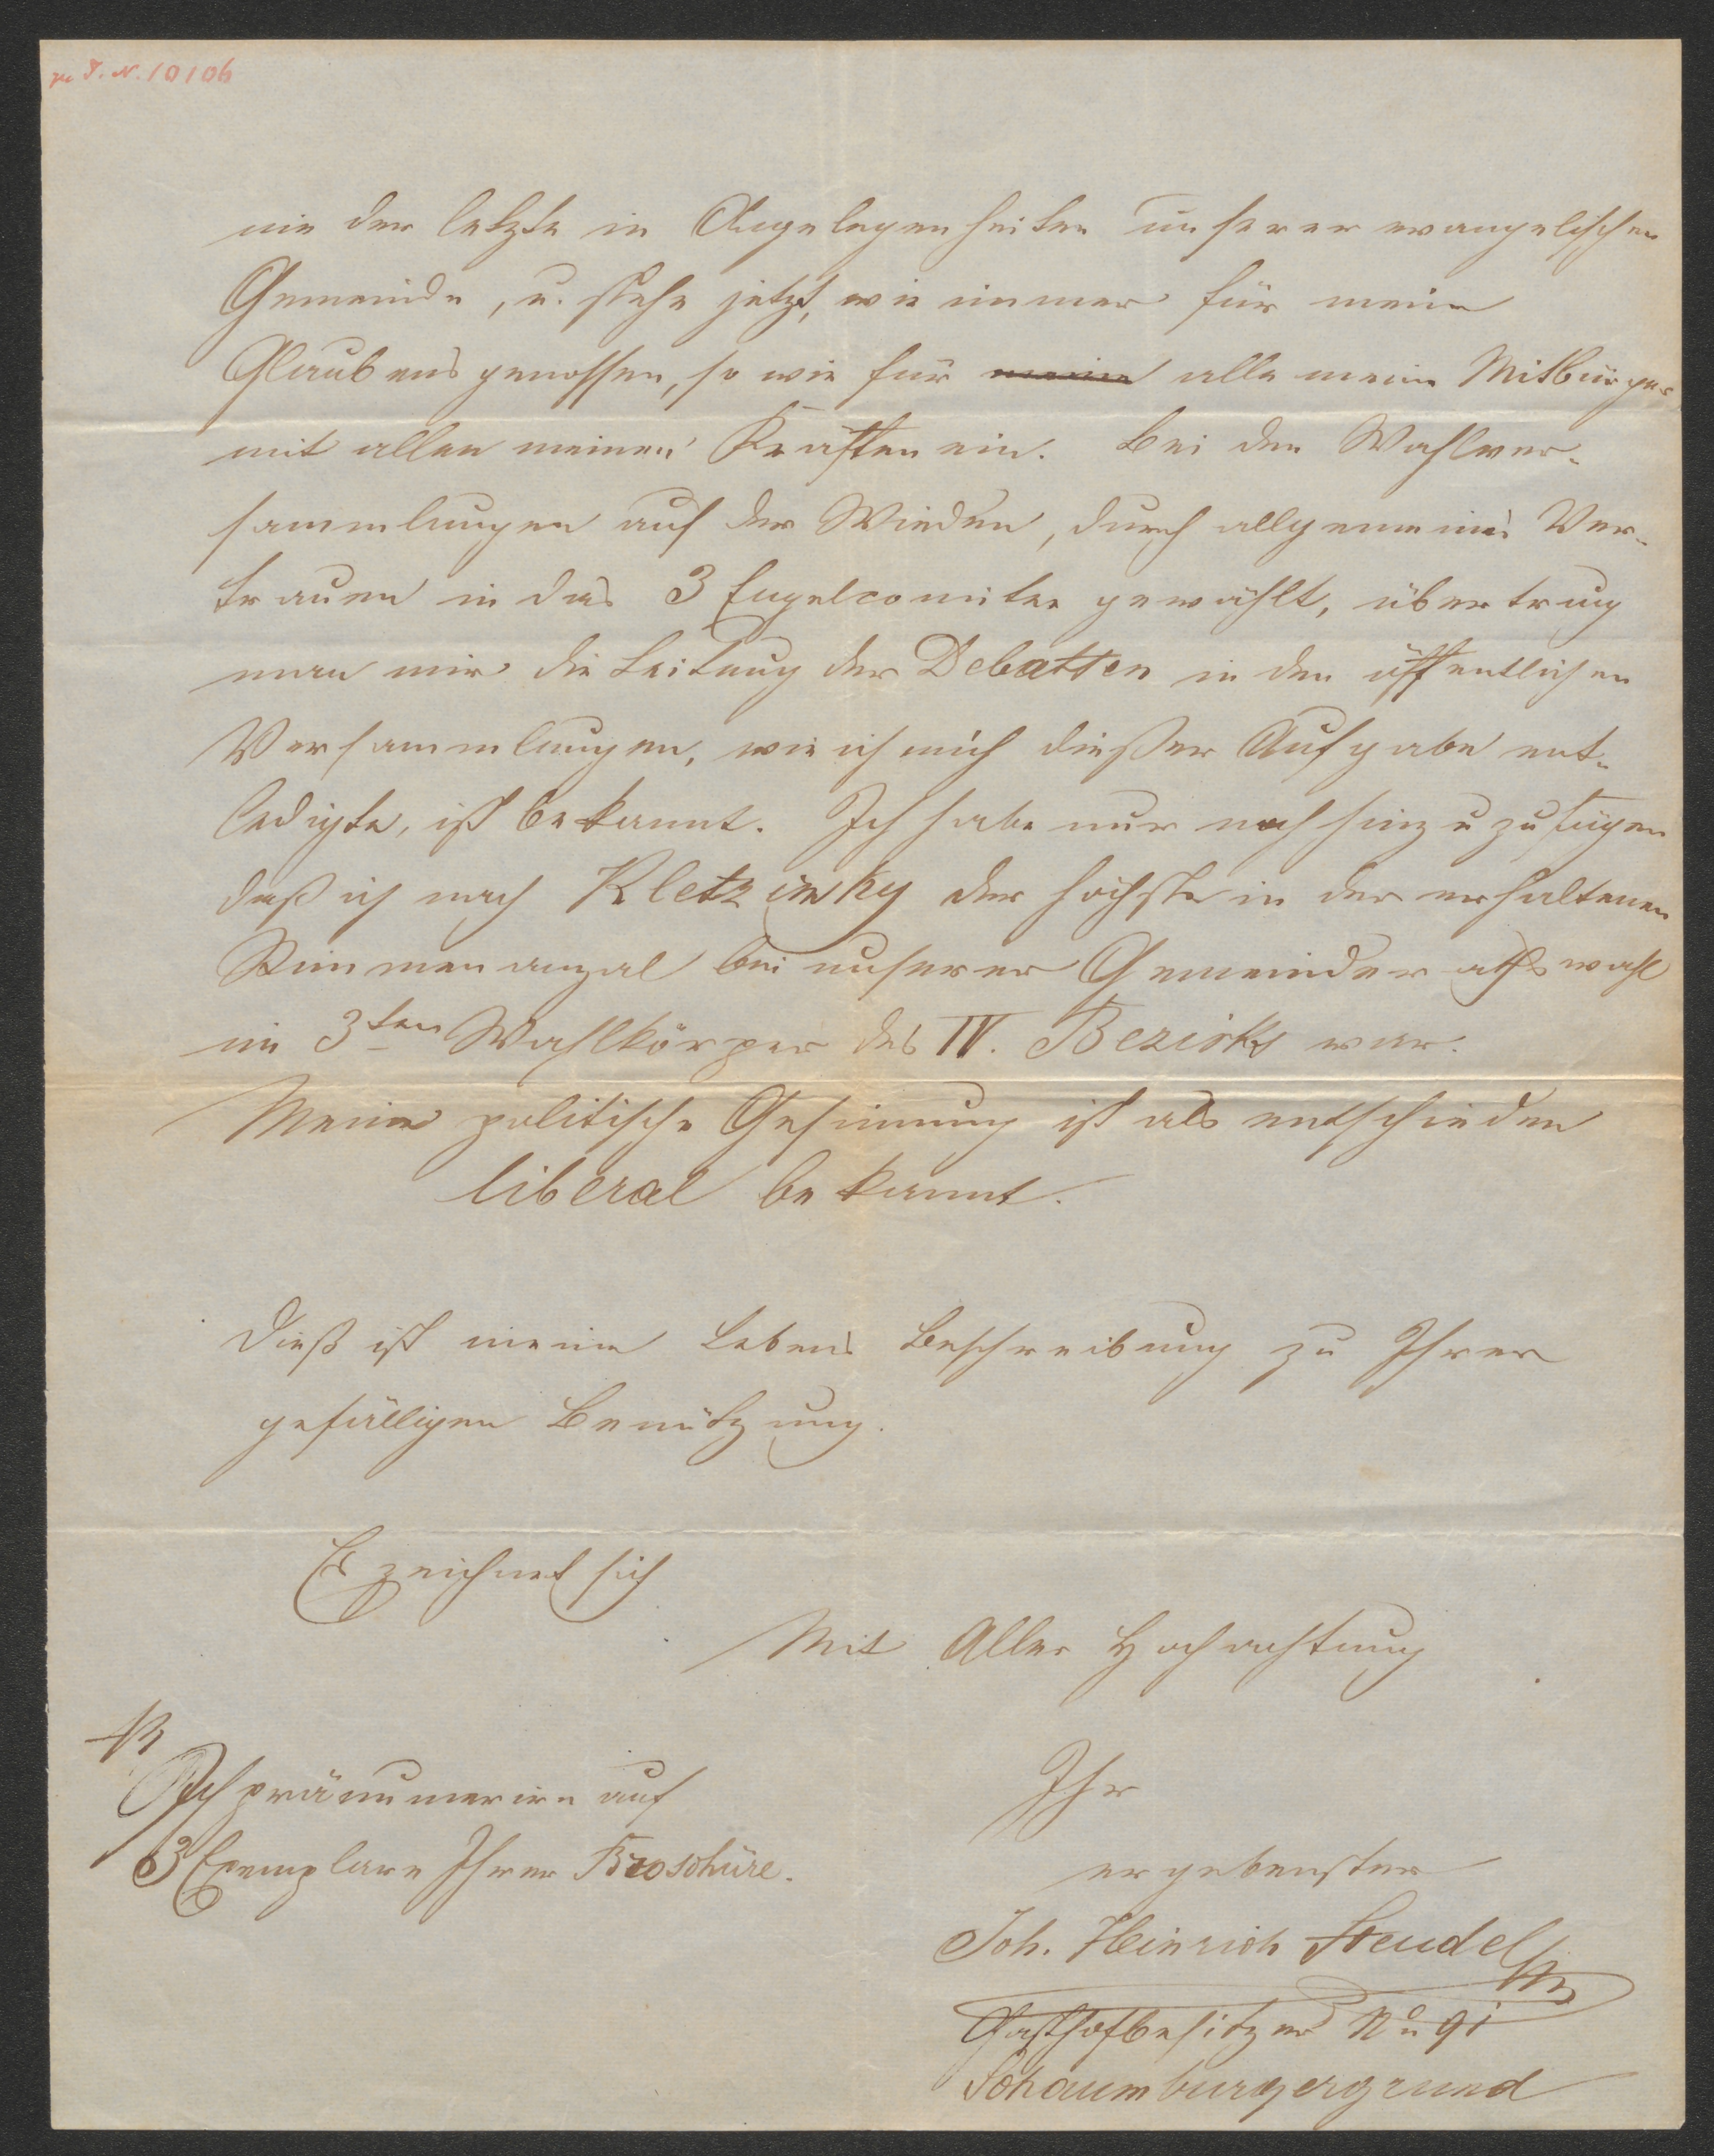 zu I. N. 10106
nie der letzte in Angelegenheiten unserer evangelischen
Gemeinde, u. stehe jetzt, wie immer für meine
Glaubensgenossen, so wie für meine alle meine Mitbürger
mit allen meinen Kräften ein. Bei den Wahlver-
sammlungen auf der Wieden, durch allgemeines Ver-
trauen in das 3 Engelcomitee gewählt, übertrug
man mir die Leitung der Debatten in den öffentlichen
Versammlungen, wie ich mich dießer Aufgabe ent-
ledigte, ist bekannt. Ich habe nur noch hinzuzufügen
daß ich nach Kletzinsky der höchste in der erhaltenen
Stimmenanzal bei unserer Gemeinderathswahl
im 3ten Wahlkörper des IV. Bezirks war.
Meine politische Gesinnung ist als entschieden
liberal bekannt.
Dieß ist meine Lebens Beschreibung zu Ihrer
gefälligen Benützung.
Es zeichnet sich
Mit Aller Hochachtung
NB
Ich pränumerire auf
3 Exemplare Ihrer Broschüre.
Ihr
ergebenster
Joh. Heinrich Steudel
Gasthofbesitzer No 91
Schaumburgergrund